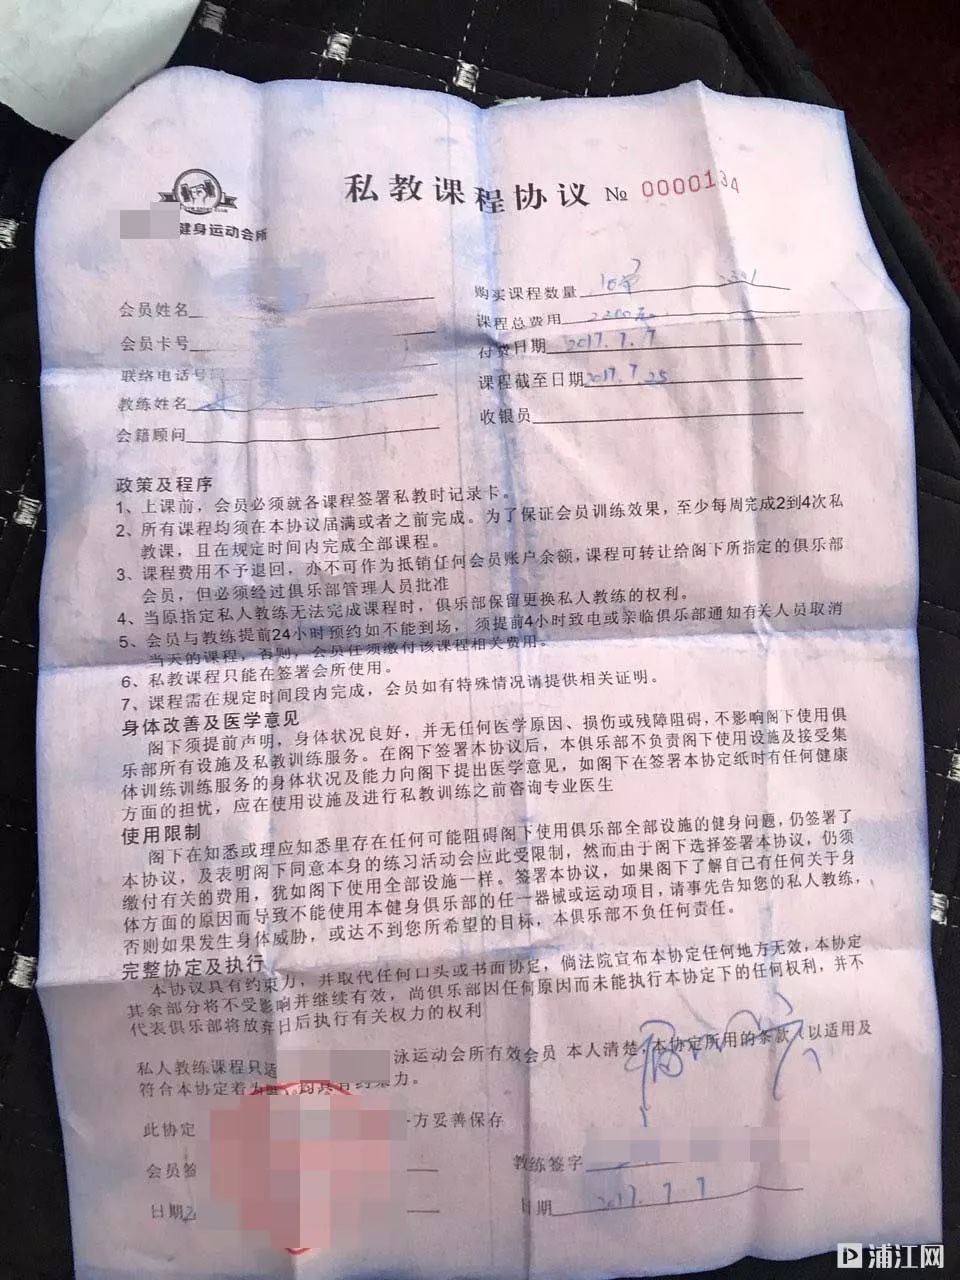 私教课程协议 № 0000134
健身运动会所
会员姓名
购买课程数量
会员卡号
课程总费用 2200元
联络电话号
付费日期 2017.7.7
教练姓名
课程截至日期 2017.7.25
会籍顾问
收银员
政策及程序
1、上课前，会员必须就各课程签署私教时记录卡。
2、所有课程均须在本协议届满或者之前完成。为了保证会员训练效果，至少每周完成2到4次私
教课，且在规定时间内完成全部课程。
3、课程费用不予退回，亦不可作为抵销任何会员账户余额，课程可转让给阁下所指定的俱乐部
会员，但必须经过俱乐部管理人员批准
4、当原指定私人教练无法完成课程时，俱乐部保留更换私人教练的权利。
5、会员与教练提前24小时预约如不能到场，须提前4小时致电或亲临俱乐部通知有关人员取消
当天的课程，否则，会员任须缴付该课程相关费用。
6、私教课程只能在签署会所使用。
7、课程需在规定时间段内完成，会员如有特殊情况请提供相关证明。
身体改善及医学意见
阁下须提前声明，身体状况良好，并无任何医学原因、损伤或残障阻碍，不影响阁下使用俱
乐部所有设施及私教训练服务。在阁下签署本协议后，本俱乐部不负责阁下使用设施及接受集
体训练训练服务的身体状况及能力向阁下提出医学意见，如阁下在签署本协定纸时有任何健康
方面的担忧，应在使用设施及进行私教训练之前咨询专业医生
使用限制
阁下在知悉或理应知悉里存在任何可能阻碍阁下使用俱乐部全部设施的健身问题，仍签署了
本协议，及表明阁下同意本身的练习活动会应此受限制，然而由于阁下选择签署本协议，仍须
缴付有关的费用，犹如阁下使用全部设施一样。签署本协议，如果阁下了解自己有任何关于身
体方面的原因而导致不能使用本健身俱乐部的任一器械或运动项目，请事先告知您的私人教练，
否则如果发生身体威胁，或达不到您所希望的目标，本俱乐部不负任何责任。
完整协定及执行
本协议具有约束力，并取代任何口头或书面协定，倘法院宣布本协定任何地方无效，本协定
其余部分将不受影响并继续有效，尚俱乐部因任何原因而未能执行本协定下的任何权利，并不
代表俱乐部将放弃日后执行有关权力的权利
私人教练课程只适 泳运动会所有效会员 本人清楚，本协定所用的条款（以适用及
符合本协定者为 具有约束力。
此协定 一方妥善保存
会员签 教练签字
日期 日期 2017.7.7
浦江网